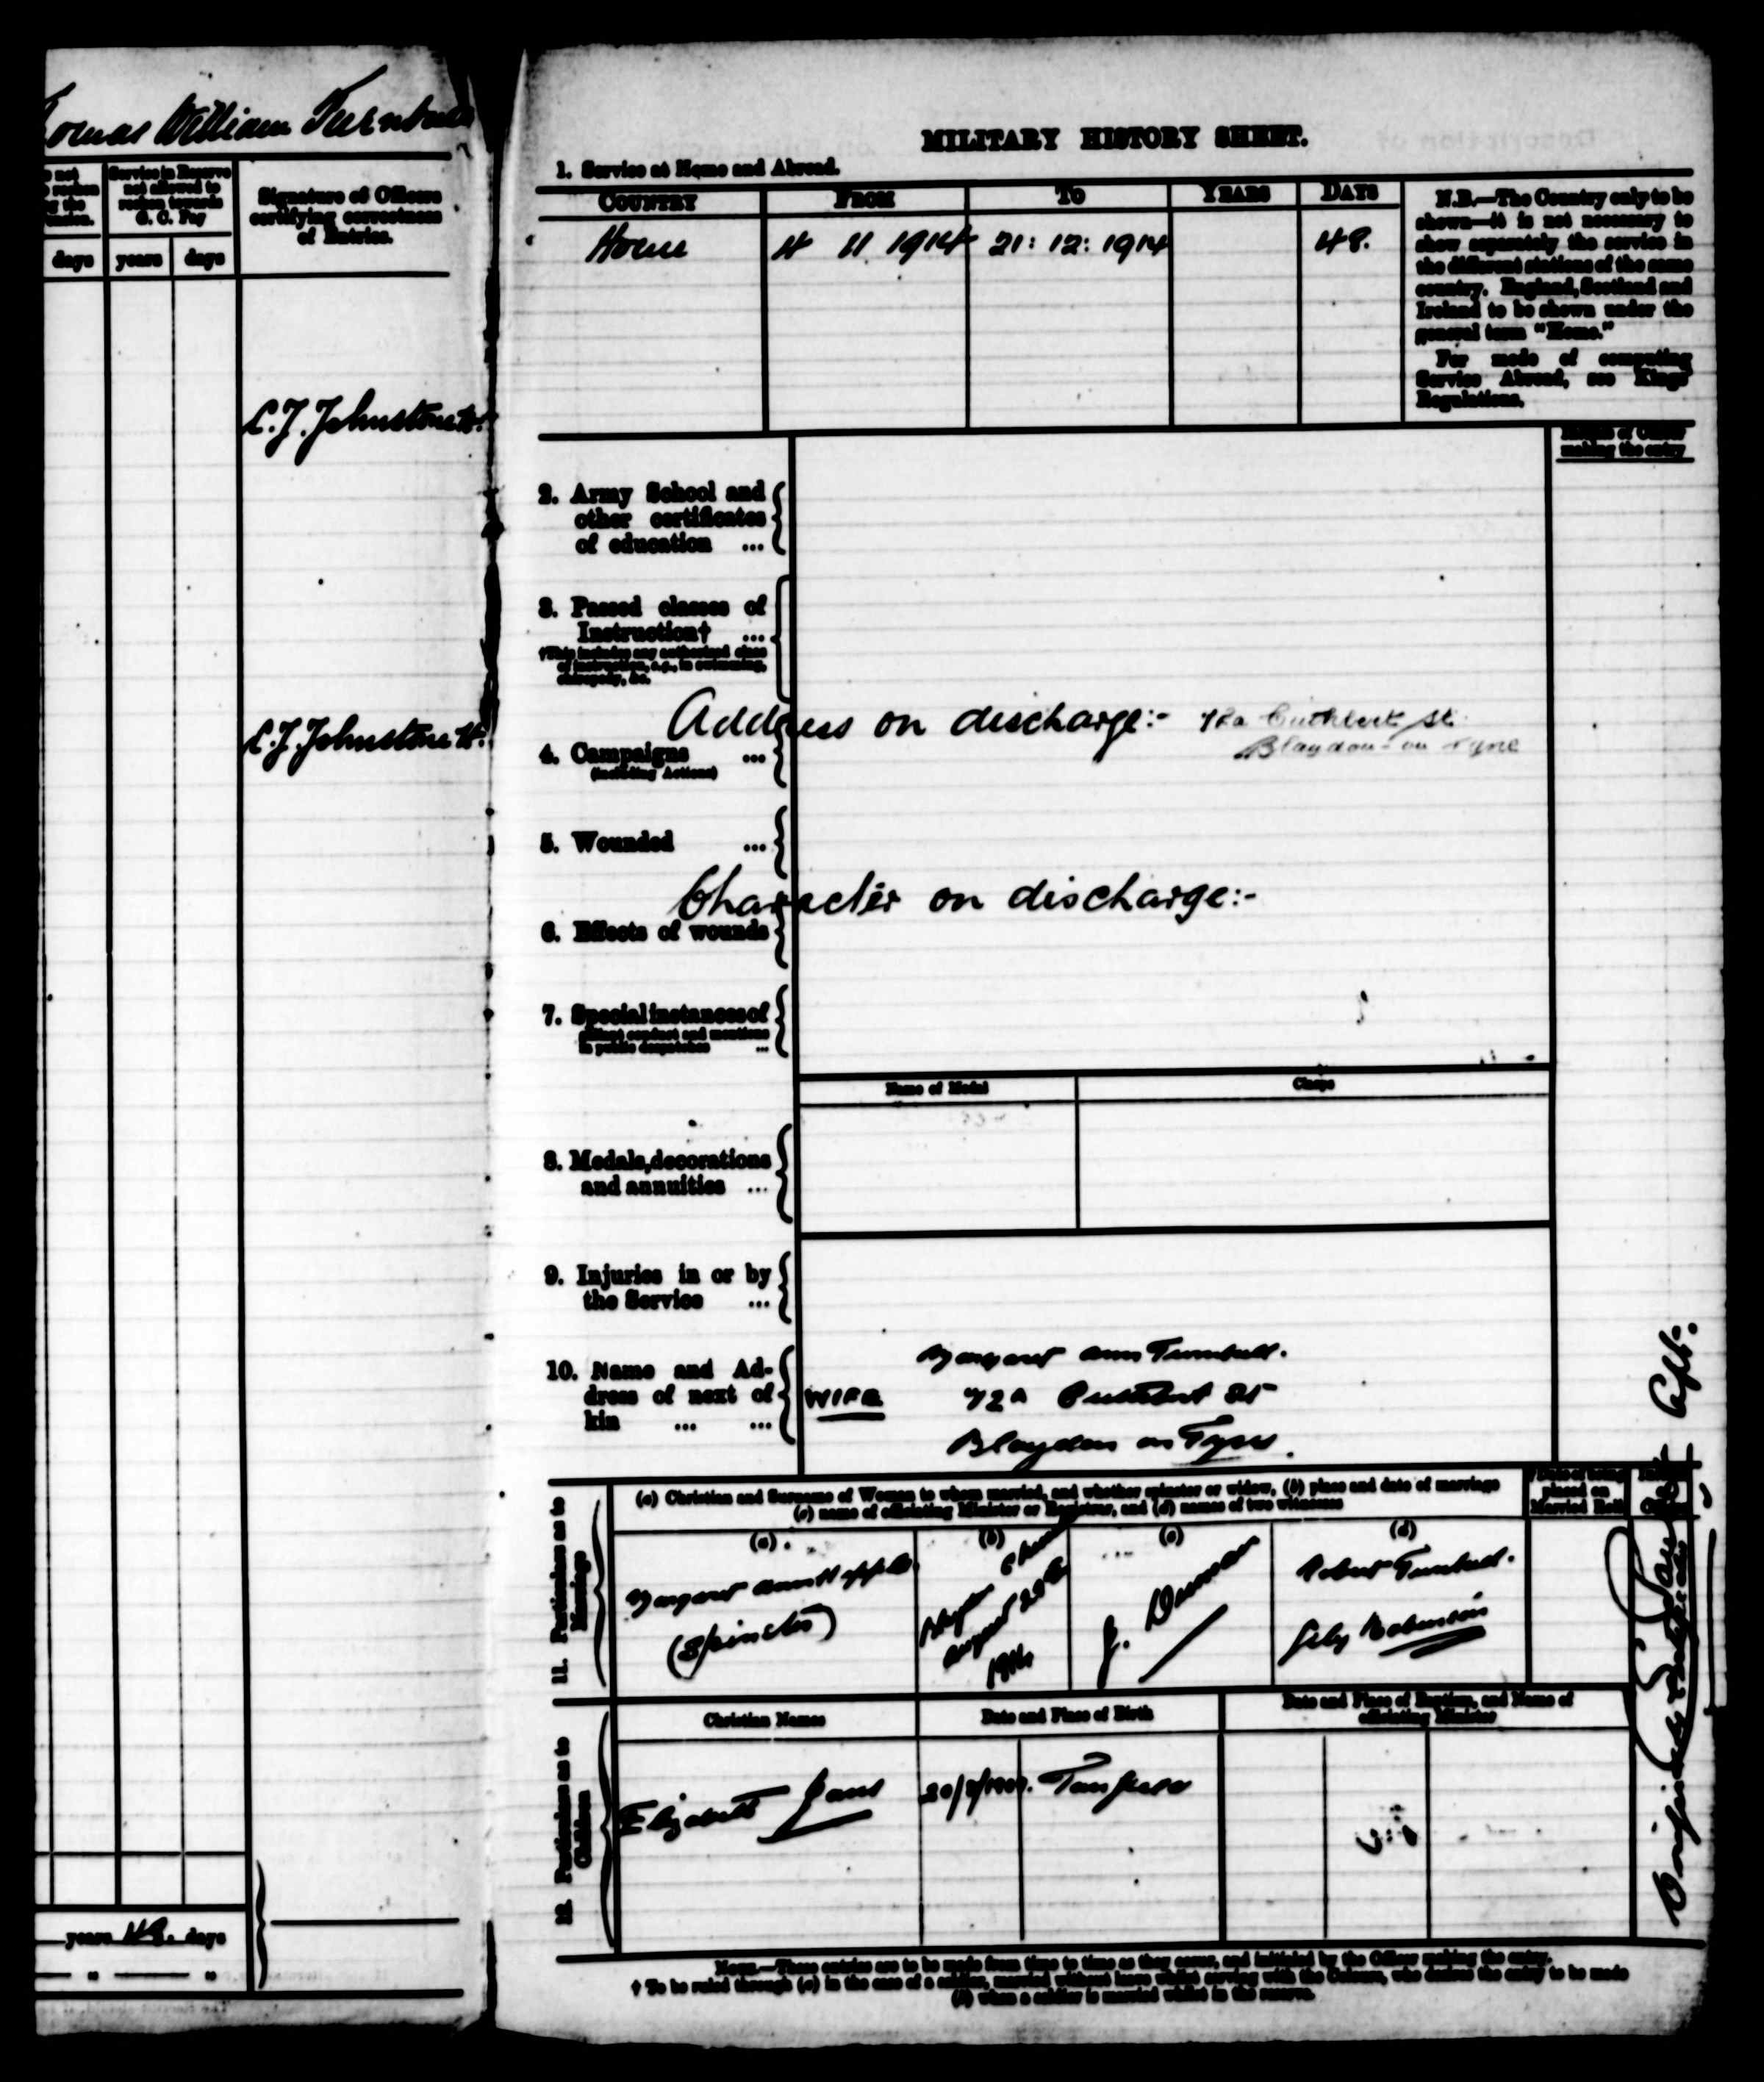 William Turnbull
Service in Reserve
not allowed to
reckon towards
G. C. Pay
Signature of Officers
certifying correctness
of Entries.
days years days
C. J. Johnstone Lt.
C. J. Johnstone Lt.
years 48. days
MILITARY HISTORY SHEET.
1. Service at Home and Abroad.
COUNTRY FROM TO YEARS DAYS
Home 4 11 1914 21: 12: 1914 48.
N.B.—The Country only to be
shown—it is not necessary to
show separately the service in
the different stations of the same
country. England, Scotland and
Ireland to be shown under the
general term "Home."
For mode of computing
Service Abroad, see Kings'
Regulations.
making the entry
2. Army School and
other certificates
of education ...
3. Passed classes of
Instruction† ...
†This includes any authorized class
of instruction, e.g., in swimming,
Address on discharge:- 72a Cuthbert St.
Blaydon-on Tyne
4. Campaigns ...
(including Actions)
5. Wounded ...
Character on discharge:-
6. Effects of wounds
7. Special instances of
gallant conduct and mentions
in public despatches ...
Name of Medal Clasps
8. Medals, decorations
and annuities ...
9. Injuries in or by
the Service ...
10. Name and Ad-
dress of next of
kin ... ...
Margaret Ann Turnbull.
WIFE 72A Cuthbert St
Blaydon on Tyne.
11. Particulars as to
Marriage
(a) Christian and Surname of Woman to whom married, and whether spinster or widow, (b) place and date of marriage
(c) name of officiating Minister or Registrar, and (d) names of two witnesses
Date of being
placed on
Married Roll
(a) (b) (c) (d)
Margaret Ann
(Spinster)
August
1914
J.
Robert Turnbull.
Robinson
12. Particulars as to
Children
Christian Names Date and Place of Birth Date and Place of Baptism, and Name of
officiating Minister
Elizabeth Jane
NOTE.—These entries are to be made from time to time as they occur, and initialed by the Officer making the entry.
† To be ruled through (a) in the case of a soldier, married without leave whilst serving with the Colours, who desires the entry to be made
(b) when a soldier is married whilst in the reserve.
Capt.